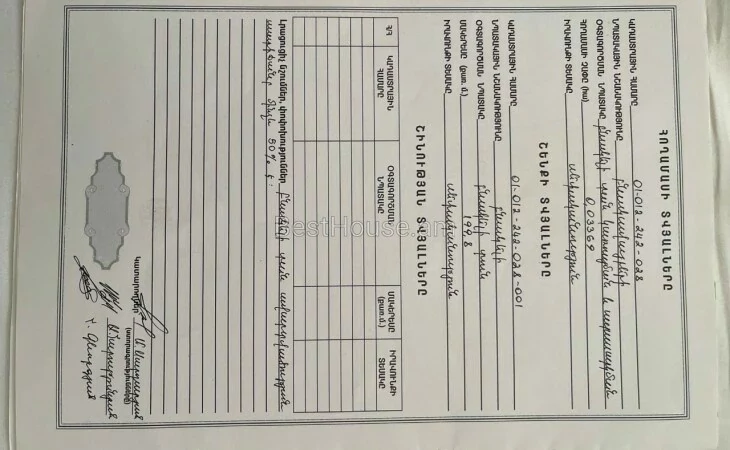 ՀՈՂԱՄԱՍԻ ՏՎՅԱԼՆԵՐԸ
ԿԱԴԱՍՏՐԱՅԻՆ ՀԱՄԱՐԸ 01-012-242-028
ՆՊԱՏԱԿԱՅԻՆ ՆՇԱՆԱԿՈՒԹՅՈՒՆԸ բնակավայրերի
ՕԳՏԱԳՈՐԾՄԱՆ ՆՊԱՏԱԿԸ բնակելի տան կառուցման և սպասարկման
ՀՈՂԱՄԱՍԻ ՉԱՓԸ (հա) 0,03369
ԻՐԱՎՈՒՆՔԻ ՏԵՍԱԿԸ սեփականության
ՇԵՆՔԻ ՏՎՅԱԼՆԵՐԸ
ԿԱԴԱՍՏՐԱՅԻՆ ՀԱՄԱՐԸ 01-012-242-028-001
ՆՊԱՏԱԿԱՅԻՆ ՆՇԱՆԱԿՈՒԹՅՈՒՆԸ բնակելի
ՕԳՏԱԳՈՐԾՄԱՆ ՆՊԱՏԱԿԸ բնակելի տուն
ՄԱԿԵՐԵՍԸ (քառ.մ.) 199,8
ԻՐԱՎՈՒՆՔԻ ՏԵՍԱԿԸ սեփականության
ՇԻՆՈՒԹՅԱՆ ՏՎՅԱԼՆԵՐԸ
ՀՀ ԿԱԴԱՍՏՐԱՅԻՆ ՀԱՄԱՐԸ ՕԳՏԱԳՈՐԾՄԱՆ ՆՊԱՏԱԿԸ ՄԱԿԵՐԵՍԸ (քառ.մ.) ԻՐԱՎՈՒՆՔԻ ՏԵՍԱԿԸ
Լրացուցիչ նշումներ, փոփոխություններ բնակելի տան ավարտվածության
աստիճանը 80% է:
Կատարողներ
(ստորագրություն)
BestHouse.am